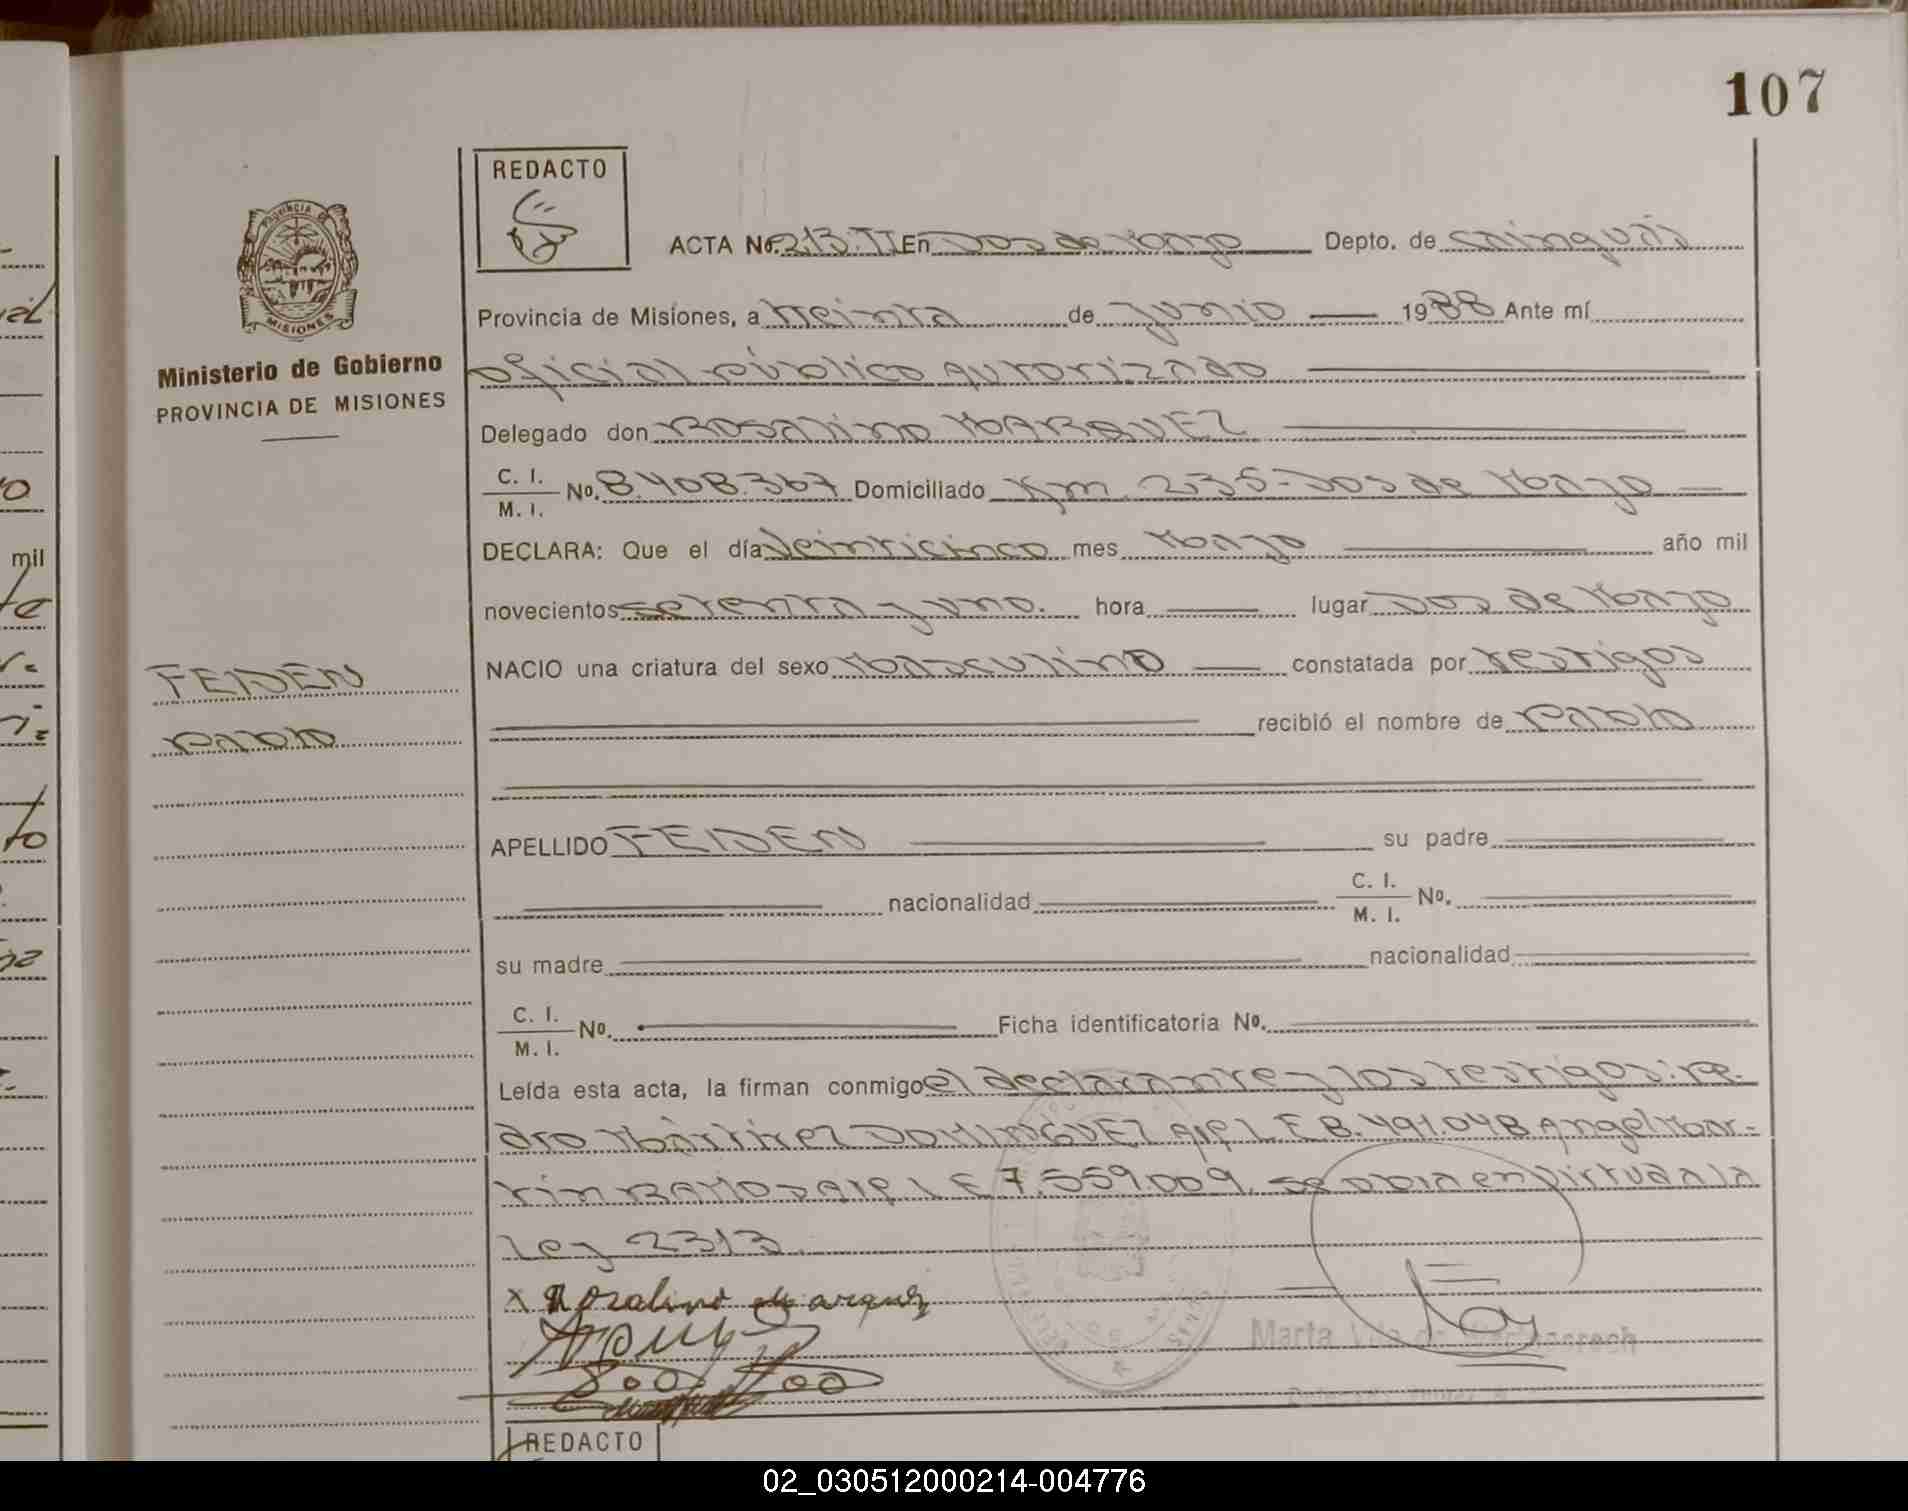 107
REDACTO
ACTA No. 213. TI En Dos de Mayo Depto. de Cainguás
PROVINCIA DE
MISIONES
Provincia de Misiones, a treinta de junio 1988 Ante mí
Ministerio de Gobierno
PROVINCIA DE MISIONES
oficial público autorizado
Delegado don Rosalino MARQUEZ
C. I.
M. I. No. 8.408.367 Domiciliado Km. 235-Dos de Mayo
DECLARA: Que el día veinticinco mes Mayo año mil
novecientos setenta y uno. hora lugar Dos de Mayo
NACIO una criatura del sexo Masculino constatada por testigos
FEIDEN
Pablo
recibió el nombre de Pablo
APELLIDO FEIDEN su padre
nacionalidad C. I.
M. I. No.
su madre nacionalidad
C. I.
M. I. No. Ficha identificatoria No.
Leída esta acta, la firman conmigo el declarante y los testigos: Pe-
dro Martirez DOMINGUEZ L E 8.491.048 Angel Mar-
tin RAMOS L E 7.559.009. se obia en virtud a la
Ley 2313.
x Rosalino Marquez
Marta
REDACTO
mil
02_030512000214-004776